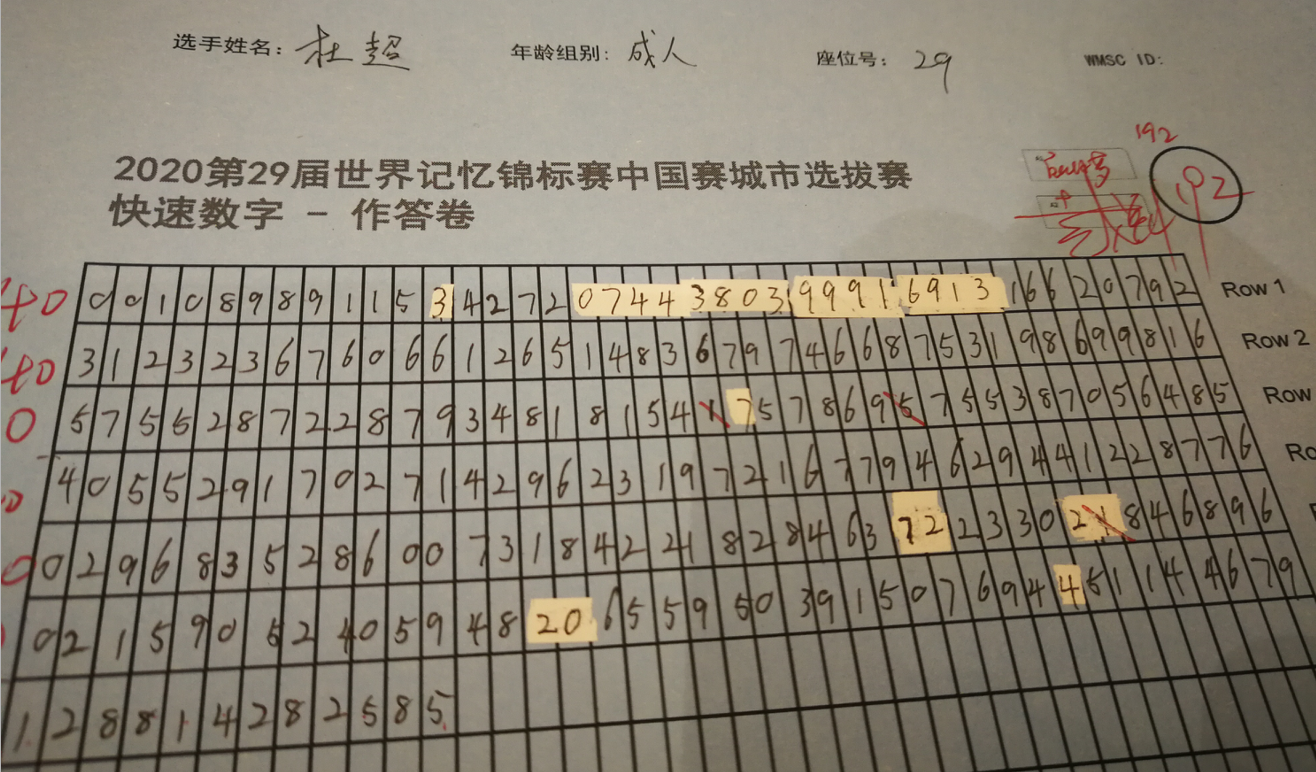 选手姓名: 杜超 年龄组别: 成人 座位号: 29 WMSC ID:
192
192
2020第29届世界记忆锦标赛中国赛城市选拔赛
快速数字 - 作答卷
40 0010898911534272074438039991691316620792 Row 1
40 3123236760661265148367974668753198699816 Row 2
0 5755287228793481815417578695755387056485 Row
4055291702714296231972167794629441228776 Ro
0 0296835286007318422482846372233021846896
0215905240594820655950391507694451144679
1288142825 85